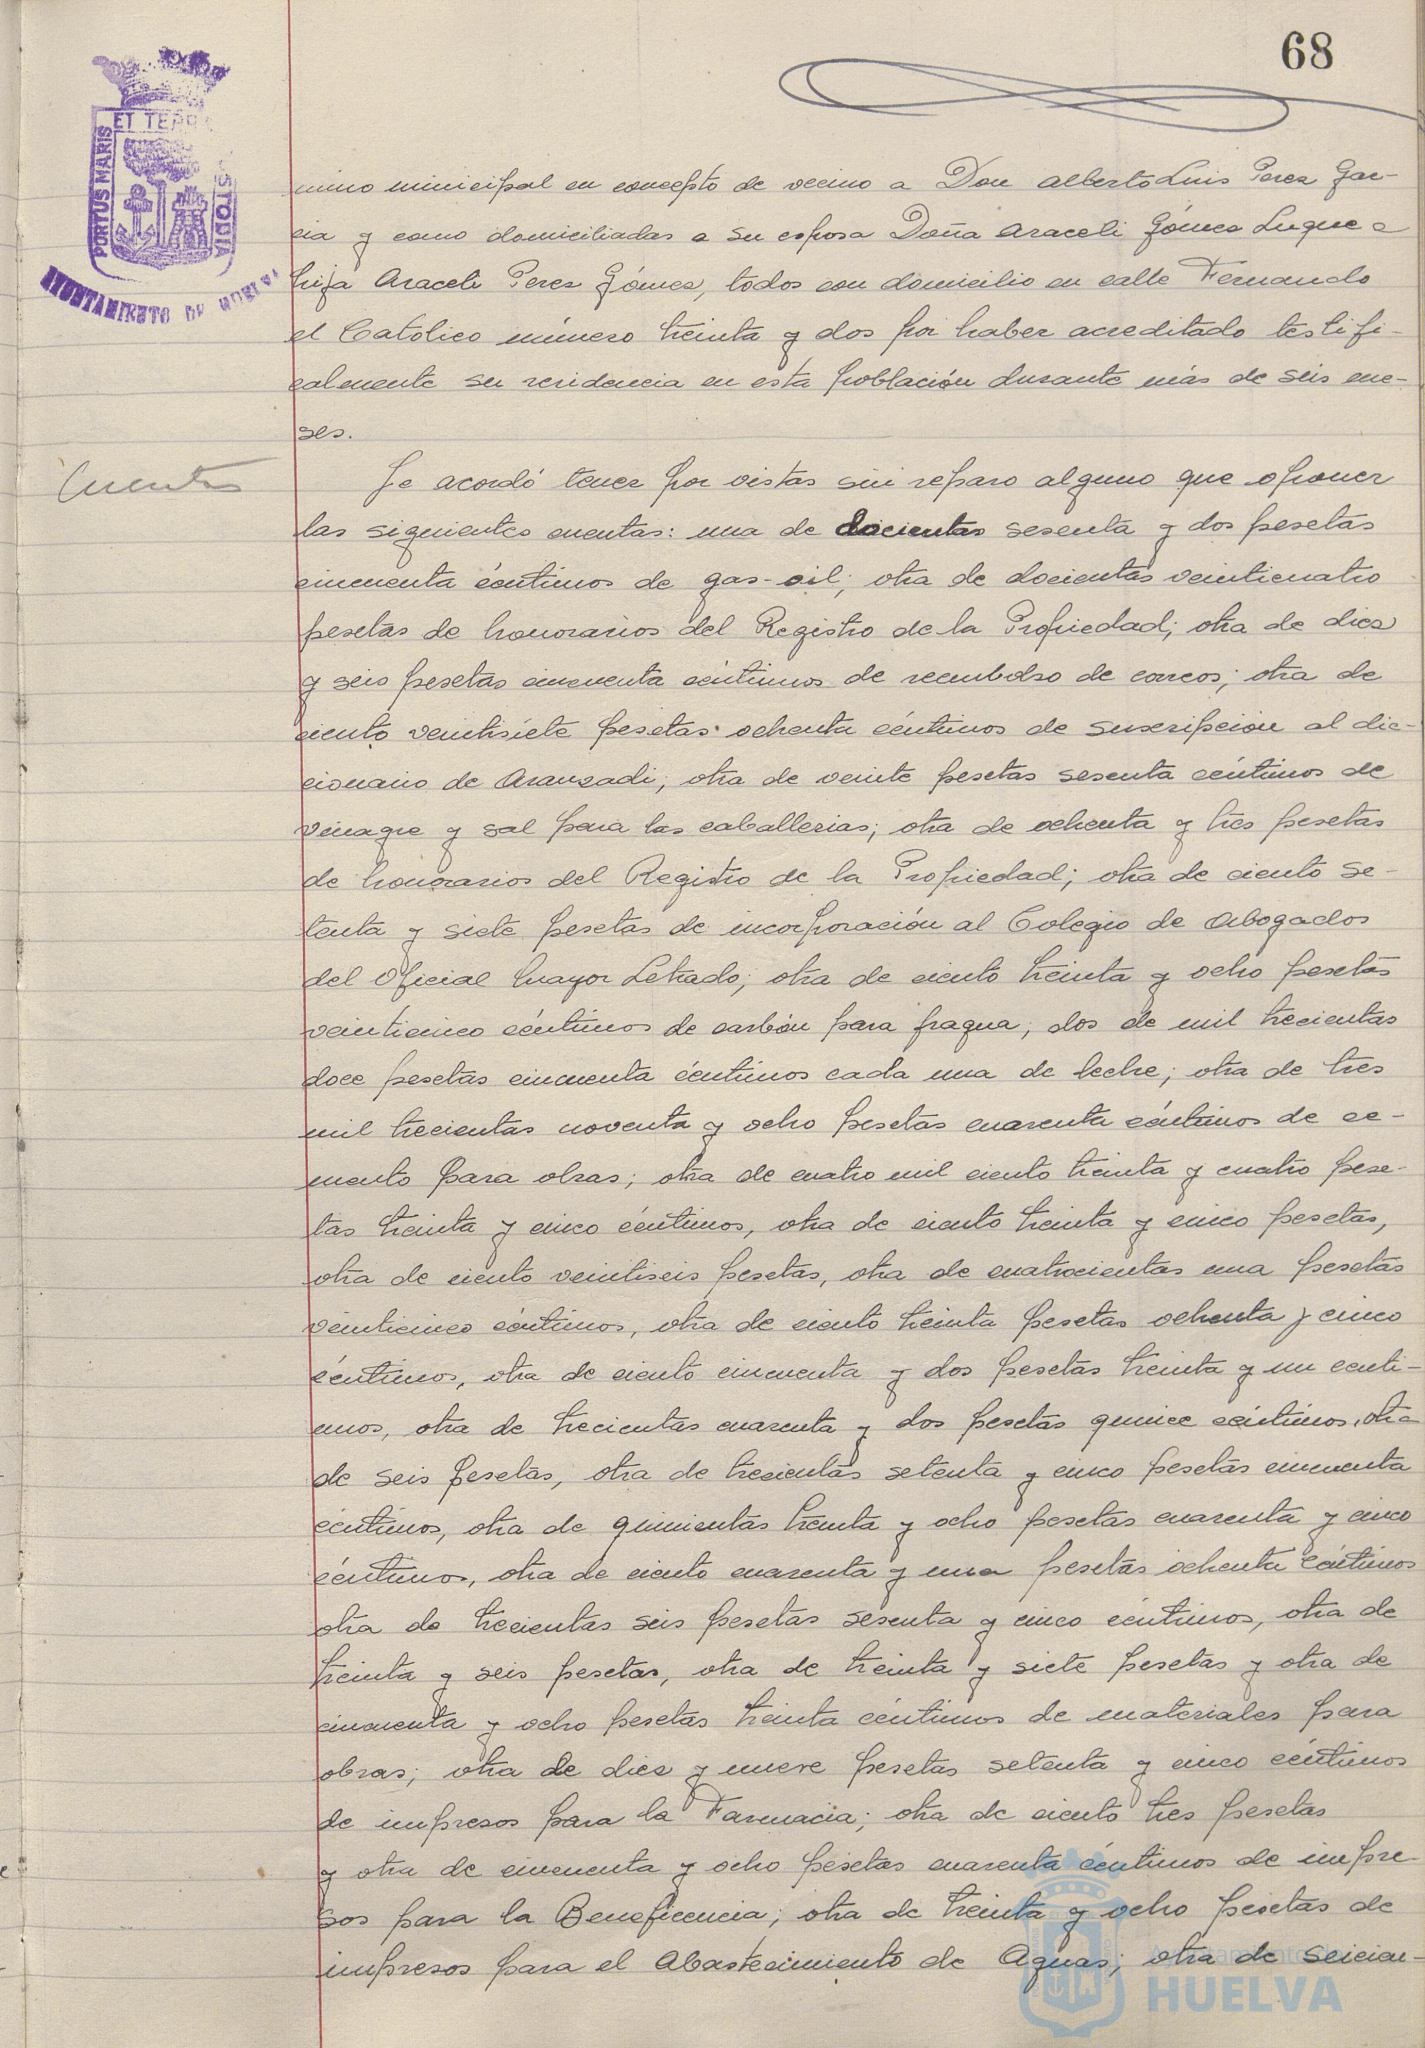 68
ET TERR
PORTUS MARIS
STODIA
AYUNTAMIENTO DE HUELVA
mino municipal en concepto de vecino a Don Alberto Luis Perez Gar-
cia y como domiciliadas a su esposa Doña Araceli Gómez Luque e
hija Araceli Perez Gómez, todos con domicilio en calle Fernando
el Católico número treinta y dos por haber acreditado testifi-
calmente su residencia en esta población durante más de seis me-
ses.
Cuentas
Se acordó tener por vistas sin reparo alguno que oponer
las siguientes cuentas: una de docientas sesenta y dos pesetas
cincuenta céntimos de gas-oil; otra de docientas veinticuatro
pesetas de honorarios del Registro de la Propiedad; otra de diez
y seis pesetas cincuenta céntimos de reembolso de correos; otra de
ciento veintisiete pesetas ochenta céntimos de suscripción al dic-
cionario de Aranzadi; otra de veinte pesetas sesenta céntimos de
vinagre y sal para las caballerias; otra de ochenta y tres pesetas
de honorarios del Registro de la Propiedad; otra de ciento se-
tenta y siete pesetas de incorporación al Colegio de Abogados
del Oficial Mayor Letrado; otra de ciento treinta y ocho pesetas
veinticinco céntimos de carbón para fragua; dos de mil trecientas
doce pesetas cincuenta céntimos cada una de leche; otra de tres
mil trecientas noventa y ocho pesetas cuarenta céntimos de ce-
mento para obras; otra de cuatro mil ciento treinta y cuatro pese-
tas treinta y cinco céntimos, otra de ciento treinta y cinco pesetas,
otra de ciento veintiseis pesetas, otra de cuatrocientas una pesetas
veinticinco céntimos, otra de ciento treinta pesetas ochenta y cinco
céntimos, otra de ciento cincuenta y dos pesetas treinta y un centi-
mos, otra de trecientas cuarenta y dos pesetas quince céntimos, otra
de seis pesetas, otra de trecientas setenta y cinco pesetas cincuenta
céntimos, otra de quinientas treinta y ocho pesetas cuarenta y cinco
céntimos, otra de ciento cuarenta y una pesetas ochenta céntimos
otra de trecientas seis pesetas sesenta y cinco céntimos, otra de
treinta y seis pesetas, otra de treinta y siete pesetas y otra de
cincuenta y ocho pesetas treinta céntimos de materiales para
obras; otra de diez y nueve pesetas setenta y cinco céntimos
de impresos para la Farmacia; otra de ciento tres pesetas
y otra de cincuenta y ocho pesetas cuarenta céntimos de impre-
sos para la Beneficencia; otra de treinta y ocho pesetas de
impresos para el Abastecimiento de Aguas; otra de seicien-
HUELVA